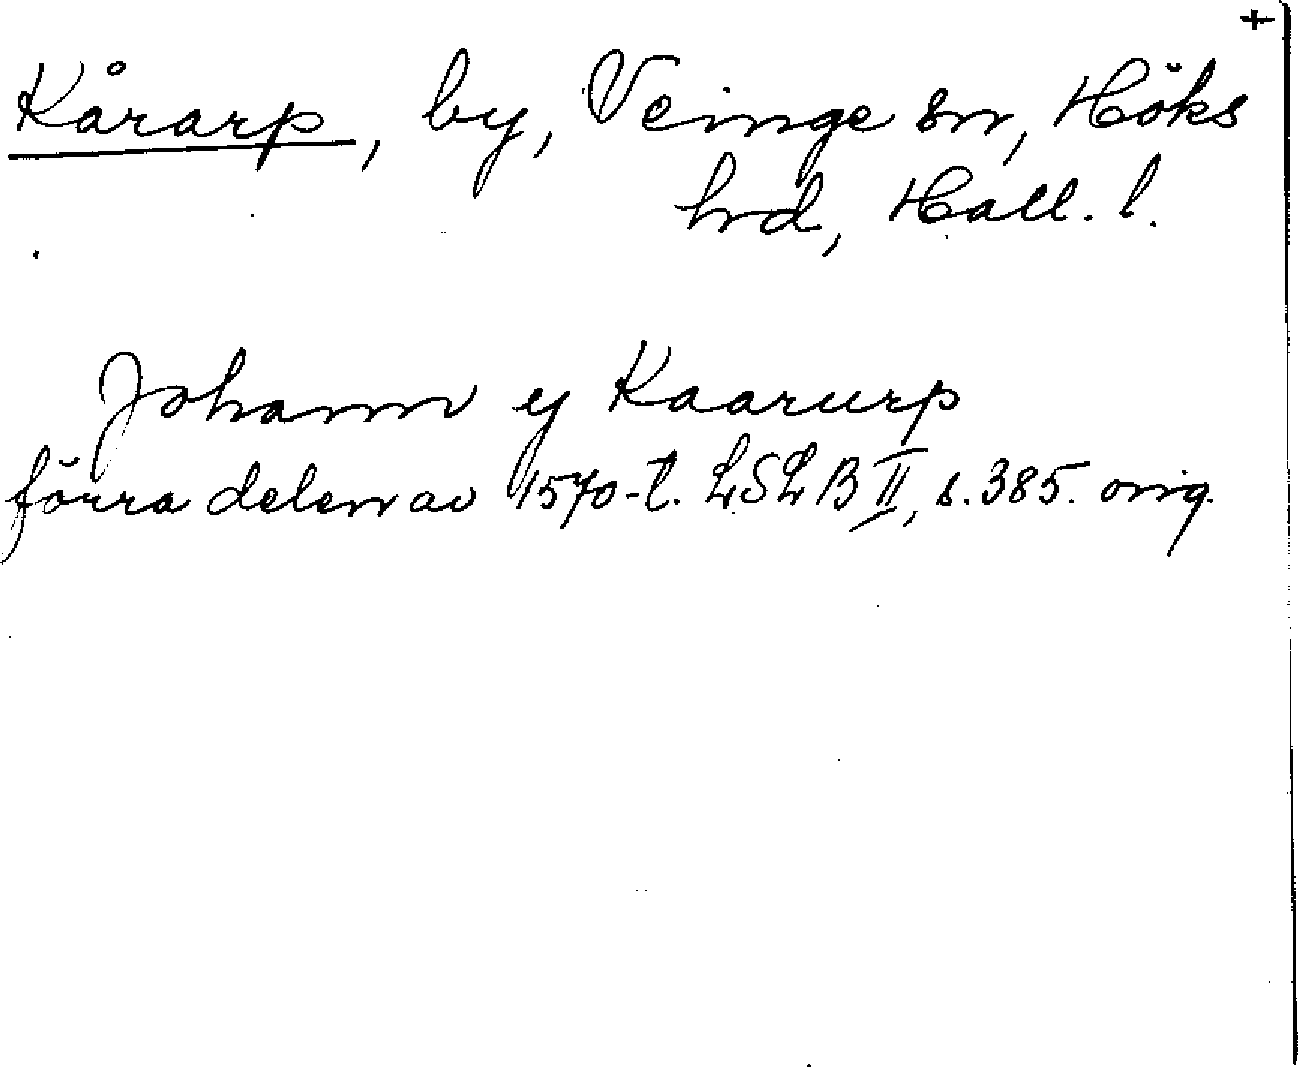 +
Kårarp, by, Veinge sn, Höks
hrd, Hall. l.
Johann y Kaarurp
förra delen av 1570-t. LSLB II, s. 385. orig.